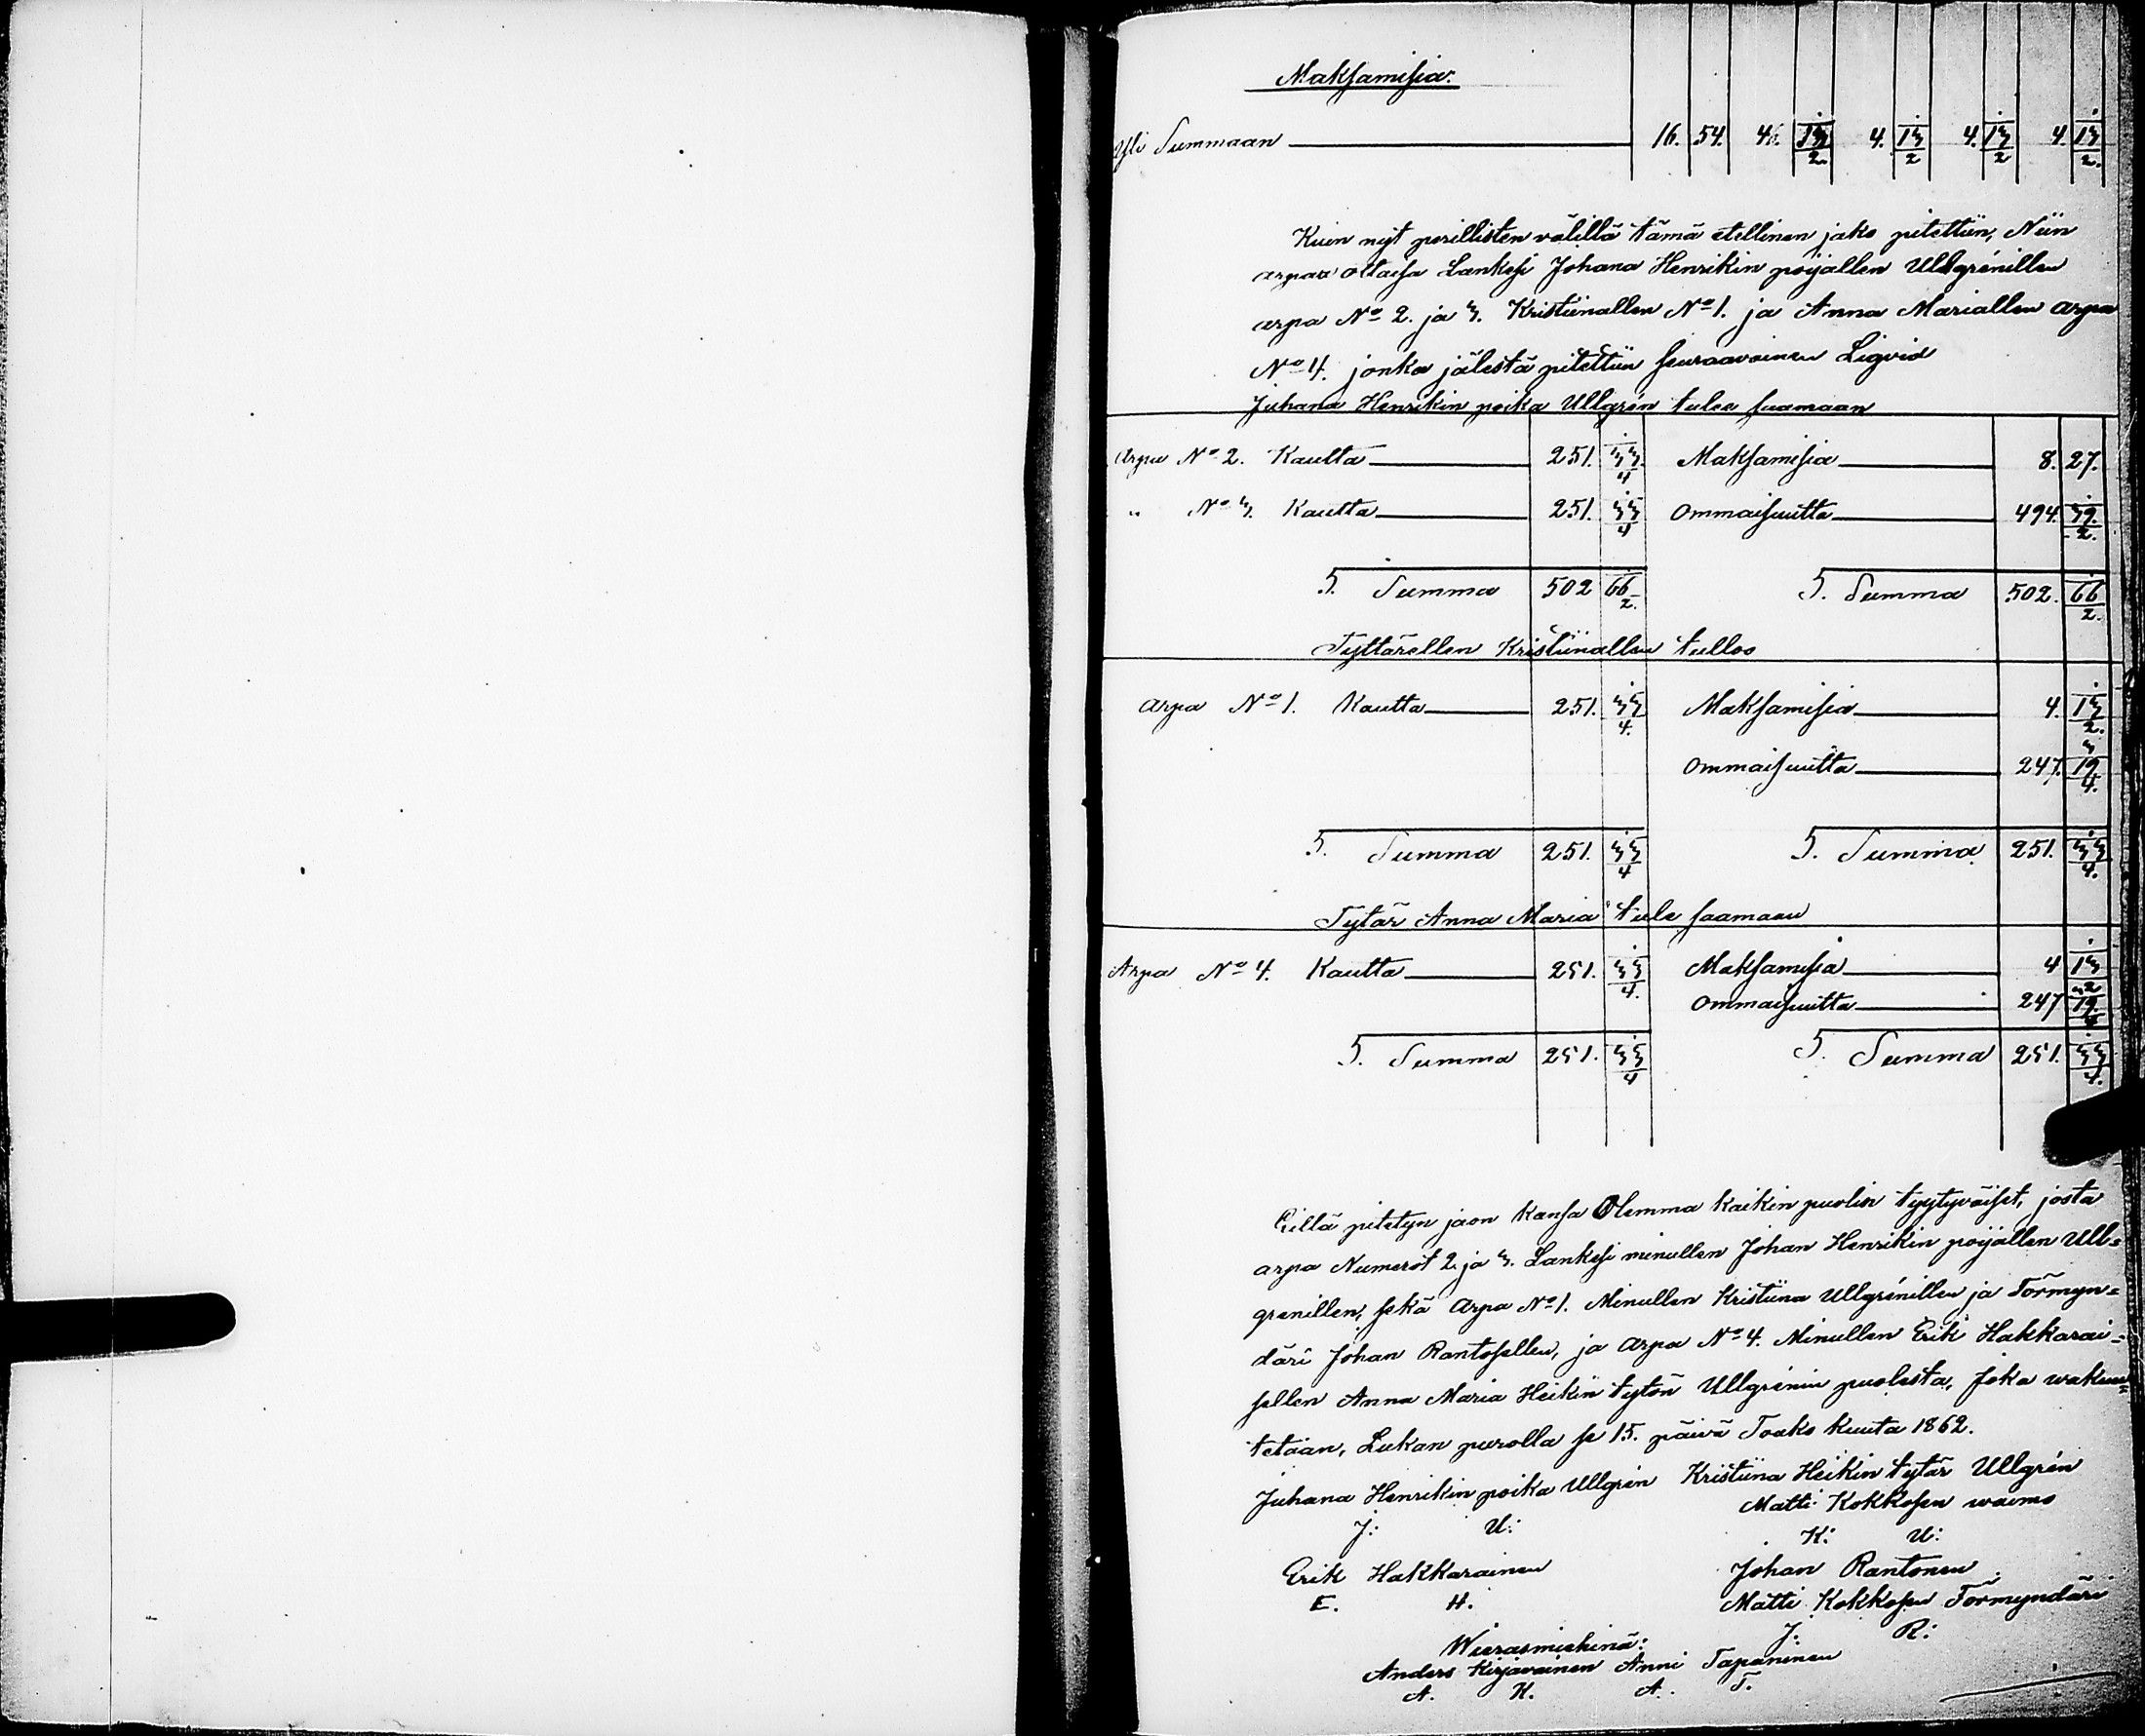 Maksamisia:
Yli Summaan 16. 54. 4. 13 1/2 4. 13 1/2 4. 13 1/2 4. 13 1/2
Kuin nyt perillisten välillä tämä etellinen jako pitettiin, Niin
arpaa ottaisa Lankesi Johana Henrikin poijallen Ullgrénillen
arpa No 2. ja 3. Kristiinallen No 1. ja Anna Mariallen arpa
No 4. jonka jälestä pitettiin seuraavainen Liqvid
Juhana Henrikin poika Ullgrén tulee saamaan
Arpa No 2. Kautta 251. 33 1/4 Maksamisia 8. 27.
" No 3. Kautta 251. 33 1/4 ommaisuutta 494. 39 1/2
S. Summa 502 66 1/2. S. Summa 502. 66 1/2.
Tyttärellen Kristiinallen tulloo
Arpa No 1. Kautta 251. 33 1/4. Maksamisia 4. 13 1/2.
ommaisuutta 247. 19 3/4.
S. Summa 251. 33 1/4 S. Summa 251. 33 1/4.
Tytär Anna Maria tule saamaan
Arpa No 4. Kautta 251. 33 1/4. Maksamisia 4 13 1/2
ommaisuutta 247 19 3/4
S. Summa 251. 33 1/4 S. Summa 251. 33 1/4.
Eillä pitetyn jaon kansa Olemma kaikin puolin tyytyväiset, josta
arpa Numerot 2 ja 3. Lankesi minullen Johan Henrikin poijallen Ull=
grenillen, sekä Arpa No 1. Minullen Kristiina Ullgrénillen ja Förmyn=
däri Johan Rantosellen, ja Arpa No 4. Minullen Erik Hakkarai=
sellen Anna Maria Heikin tytön Ullgrénin puolesta, Joka wakuu=
tetaan, Lukan purolla se 15. päivä Touko kuuta 1862.
Juhana Henrikin poika Ullgrén Kristiina Heikin tytär Ullgrén
Matti Kokkosen waimo
J: U: K: U:
Erik Hakkarainen Johan Rantonen
E. H. Matti Kokkosen Förmyndäri
Wierasmiehinä: J: R:
Anders Kirjavainen Anni Tapaninen
A. K. A. T.